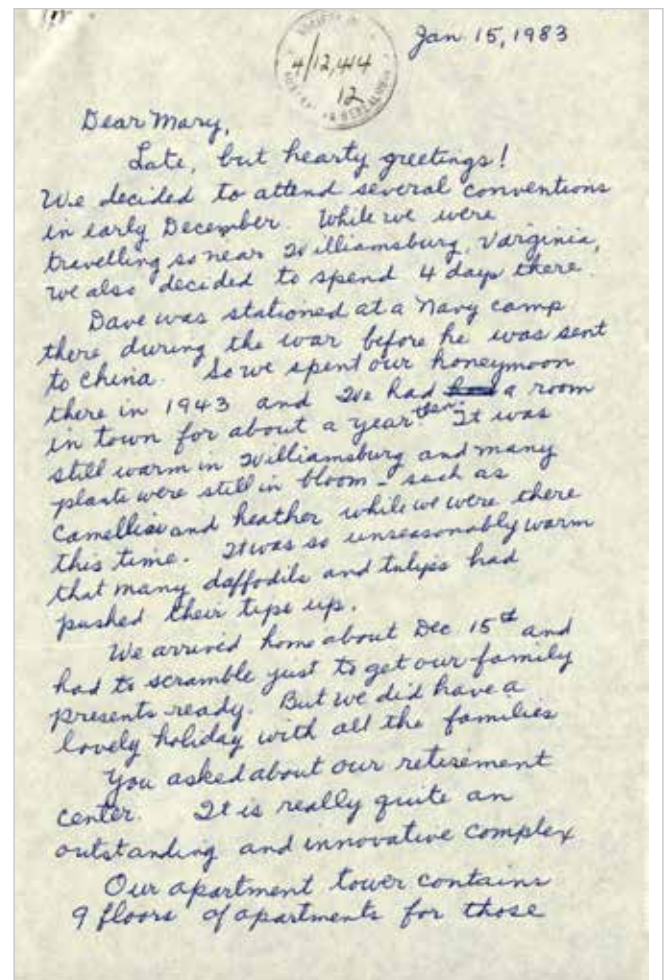 Jan 15, 1983
4/12,444
12
Dear Mary,
Late, but hearty greetings!
We decided to attend several conventions
in early December. While we were
travelling so near Williamsburg, Varginia,
we also decided to spend 4 days there.
Dave was stationed at a Navy camp
there during the war before he was sent
to China. So we spent our honeymoon
there in 1943 and we had a room
in town for about a year then. It was
still warm in Williamsburg and many
plants were still in bloom - such as
Camellias and heather while we were there
this time. It was so unseasonably warm
that many daffodils and tulips had
pushed their tips up.
We arrived home about Dec 15th and
had to scramble just to get our family
presents ready. But we did have a
lovely holiday with all the families
You asked about our retirement
center. It is really quite an
outstanding and innovative complex
Our apartment tower contains
9 floors of apartments for those